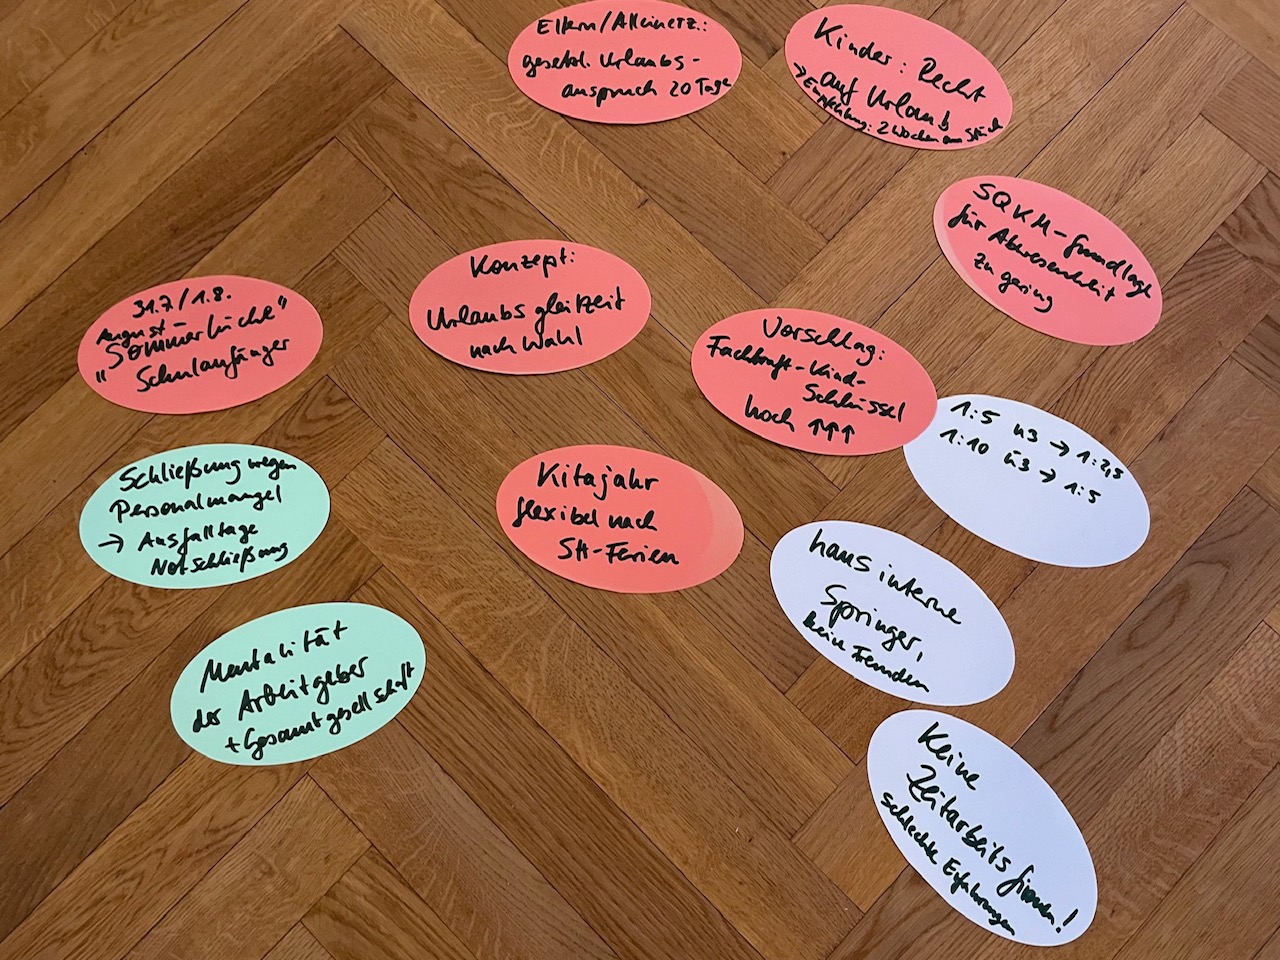 Eltern/Alleinerz.:
gesetzl. Urlaubs-
anspruch 20 Tage
Kinder: Recht
auf Urlaub
→ Empfehlung: 2 Wochen am Stück
SQKM-Grundlage
für Abwesenheit
zu gering
Konzept:
Urlaubsgleitzeit
nach Wahl
31.7/1.8.
August-
"Sommerlücke"
Schulanfänger
Vorschlag:
Fachkraft-Kind-
Schlüssel
hoch ↑↑↑
1:5 u3 → 1:2,5
1:10 ü3 → 1:5
Schließung wegen
Personalmangel
→ Ausfalltage
Notschließung
Kitajahr
flexibel nach
SH-Ferien
hausinterne
Springer,
keine Fremden
Mentalität
der Arbeitgeber
+ Gesamtgesellschaft
Keine
Zeitarbeitsfirmen!
schlechte Erfahrungen